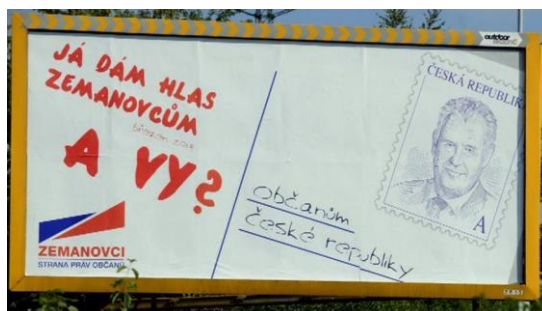 outdoor
JÁ DÁM HLAS
ZEMANOVCŮM
A VY?
ZEMANOVCI
STRANA PRÁV OBČANŮ
Občanům
České republiky
ČESKÁ REPUBLIK
A